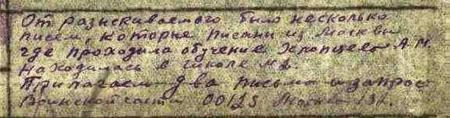 От разыскиваемого было несколько
писем, которые писаны из Москвы
где проходила обучение А.М.
Находилась в школе №2.
Прилагаем два письма и запрос
Воинской части 00125 Москва